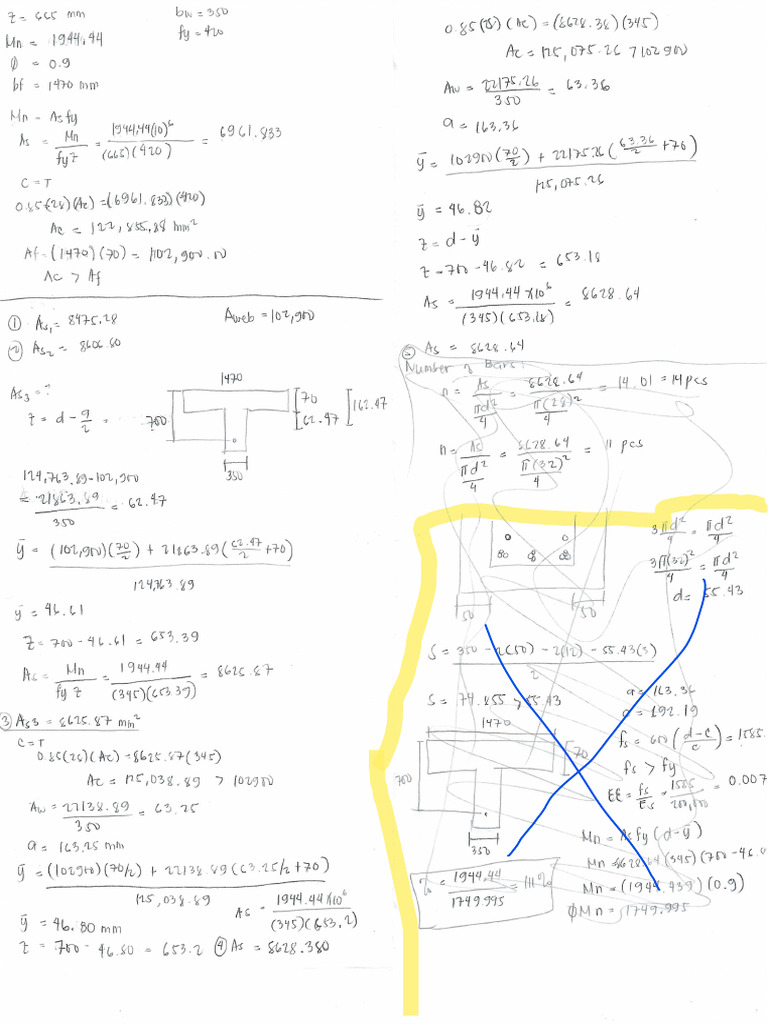 z = 665 mm
bw = 350
Mn = 1944.44
fy = 420
ϕ = 0.9
bf = 1470 mm
Mn = Asfy
As = Mn/fyz = 1944.44(10)^6/(665)(420) = 6961.833
C = T
0.85(28)(Ac) = (6961.833)(420)
Ac = 122,855.88 mm²
Af = (1470)(70) = 102,900.00
Ac > Af
① As₁ = 8475.28
Aweb = 102,900
② As₂ = 8606.80
As₃ = ?
z = d - a/2 =
1470
700
70
62.47
162.47
350
124,763.89-102,900
= 21863.89/350 = 62.47
ȳ = (102,900)(70/2) + 21863.89(62.47/2 + 70)/124,763.89
ȳ = 46.61
z = 700 - 46.61 = 653.39
As = Mn/fy z = 1944.44/(345)(653.39) = 8625.87
③ As3 = 8625.87 mm²
C = T
0.85(28)(Ac) = 8625.87(345)
Ac = 125,038.89 > 102900
Aw = 22138.89/350 = 63.25
a = 163.25 mm
ȳ = (102900)(70/2) + 22138.89(63.25/2 + 70)/125,038.89
ȳ = 46.80 mm
As = 1944.44 x10^6/(345)(653.2)
z = 700 - 46.80 = 653.2
④ As = 8628.380
0.85(28)(Ac) = (8628.38)(345)
Ac = 125,075.26 > 102900
Aw = 22175.26/350 = 63.36
a = 163.36
ȳ = 102900(70/2) + 22175.26(63.36/2 + 70)/125,075.26
ȳ = 46.82
z = d - ȳ
z = 700 - 46.82 = 653.18
As = 1944.44 x10^6/(345)(653.18) = 8628.64
⑤ As = 8628.64
Number of Bars:
n = As/(πd²/4) = 8628.64/(π(28)²/4) = 14.01 = 14 pcs
n = As/(πd²/4) = 8628.64/(π(32)²/4) = 11 pcs
50
50
3πd²/4 = πd²/4
3π(32)²/4 = πd²/4
d = 55.43
S = 350 - 2(50) - 2(12) - 55.43(3)/2
S = 74.855 > 55.43
1470
700
70
350
a = 163.36
c = 192.19
fs = 600(d-c/c) = 1585.
fs > fy
EE = fs/Es = 1585/200,000 = 0.007
Mn = Asfy(d-ȳ)
Mn = 8628.64(345)(700-46.8
Mn = (1944.439)(0.9)
ϕMn = 1749.995
% = 1944.44/1749.995 = 111%